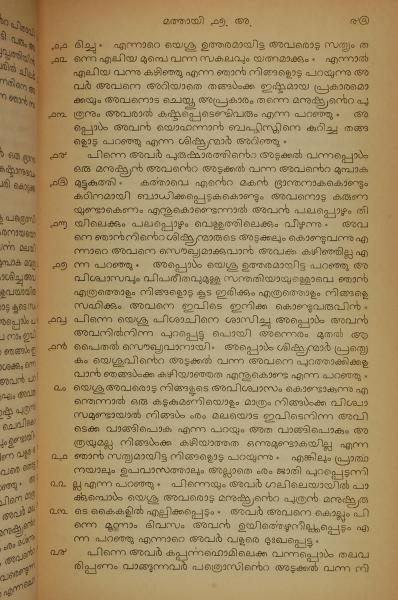 മത്തായി ൧൭. അ. ൪൫
൧൧ രിച്ചു * എന്നാറെ യെശു ഉത്തരമായിട്ട അവരൊടു സത്യം ത
൧൨ ന്നെ എലിയ മുമ്പെ വന്ന സകലവും യഥാസ്ഥാനമാക്കും * എന്നാൽ
എലിയ വന്നു കഴിഞ്ഞു എന്ന ഞാൻ നിങ്ങളൊടു പറയുന്നു അ
വർ അവനെ അറിയാതെ തങ്ങൾക്ക ഇഷ്ടമായ പ്രകാരമൊ
ക്കയും അവനൊട ചെയ്തു അപ്രകാരം തന്നെ മനുഷ്യന്റെ പു
൧൩ ത്രനും അവരാൽ കഷ്ടപ്പെടെണ്ടിവരും എന്ന പറഞ്ഞു * അ
പ്പൊൾ അവൻ യൊഹന്നാൻ ബപ്തിസ്തിനെ കുറിച്ച തങ്ങ
ളൊടു പറഞ്ഞു എന്ന ശിഷ്യന്മാർ അറിഞ്ഞു *
൧൪ പിന്നെ അവർ പുരുഷാരത്തിന്റെ അടുക്കൽ വന്നപ്പൊൾ
ഒരു മനുഷ്യൻ അവന്റെ അടുക്കൽ വന്ന അവന്റെ മുമ്പാക
൧൫ മുട്ടുകുത്തി * കൎത്താവെ എന്റെ മകൻ ഭ്രാന്തനാകകൊണ്ടും
കഠിനമായി ബാധിക്കപ്പെടുകകൊണ്ടും അവനൊടു കരുണ
യുണ്ടാകെണം എന്തുകൊണ്ടെന്നാൽ അവൻ പലപ്പൊഴും തീ
൧൬ യിലെക്കും പലപ്പൊഴും വെള്ളത്തിലെക്കും വീഴുന്നു * അവ
നെ ഞാൻ നിന്റെ ശിഷ്യന്മാരുടെ അടുക്കലും കൊണ്ടുവന്നു എ
ന്നാറെ അവനെ സൌഖ്യമാക്കുവാൻ അവർക്ക കഴിഞ്ഞില്ല എ
൧൭ ന്ന പറഞ്ഞു * അപ്പൊൾ യെശു ഉത്തരമായിട്ട പറഞ്ഞു അ
വിശ്വാസവും വിപരീതവുമുള്ള സന്തതിയായുള്ളൊവെ ഞാൻ
എത്രത്തൊളം നിങ്ങളൊടു കൂട ഇരിക്കും എത്രത്തൊളം നിങ്ങളെ
സഹിക്കും അവനെ ഇവിടെ ഇനിക്ക കൊണ്ടുവരുവിൻ *
൧൮ പിന്നെ യെശു പിശാചിനെ ശാസിച്ചു അപ്പൊൾ അവൻ
അവനിൽനിന്ന പുറപ്പെട്ടു പൊയി അന്നെരം മുതൽ ആ
൧൯ പൈതൽ സൌഖ്യവാനായി * അപ്പൊൾ ശിഷ്യന്മാർ പ്രത്യെ
കം യെശുവിന്റെ അടുക്കൽ വന്ന അവനെ പുറത്താക്കിക്കള
വാൻ ഞങ്ങൾക്ക കഴിയാഞ്ഞത എന്തുകൊണ്ട എന്ന പറഞ്ഞു *
൨൦ യെശു അവരൊടു നിങ്ങളുടെ അവിശ്വാസം കൊണ്ടാകുന്നു എ
ന്തെന്നാൽ ഒരു കടുകുമണിയൊളം മാത്രം നിങ്ങൾക്കു വിശ്വാ
സമുണ്ടായാൽ നിങ്ങൾ ൟ മലയൊട ഇവിടെനിന്ന അവി
ടെക്കു വാങ്ങിപൊക എന്ന പറയും അത വാങ്ങിപൊകും അ
ത്രയുമല്ല നിങ്ങൾക്കു കഴിയാത്തത ഒന്നുമുണ്ടാകയില്ല എന്ന
൨൧ ഞാൻ സത്യമായിട്ട നിങ്ങളൊടു പറയുന്നു * എങ്കിലും പ്രാൎത്ഥ
നയാലും ഉപവാസത്താലും അല്ലാതെ ൟ ജാതി പുറപ്പെടുന്നി
൨൨ ല്ല എന്ന പറഞ്ഞു * പിന്നെയും അവർ ഗലിലെയായിൽ പാ
ൎക്കുമ്പൊൾ യെശു അവരൊടു മനുഷ്യന്റെ പുത്രൻ മനുഷ്യരു
൨൩ ടെ കൈകളിൽ എല്പിക്കപ്പെടും * അവർ അവനെ കൊല്ലും പി
ന്നെ മൂന്നാം ദിവസം അവൻ ഉയിൎത്തെഴുനീല്ക്കപ്പെടും എ
ന്ന പറഞ്ഞു എന്നാറെ അവർ വളരെ ദുഃഖപ്പെട്ടു *
൨൪ പിന്നെ അവർ കപ്പർന്നഹൊമിലെക്കു വന്നപ്പൊൾ തലവ
രിപ്പണം വാങ്ങുന്നവർ പത്രൊസിന്റെ അടുക്കൽ വന്ന നി